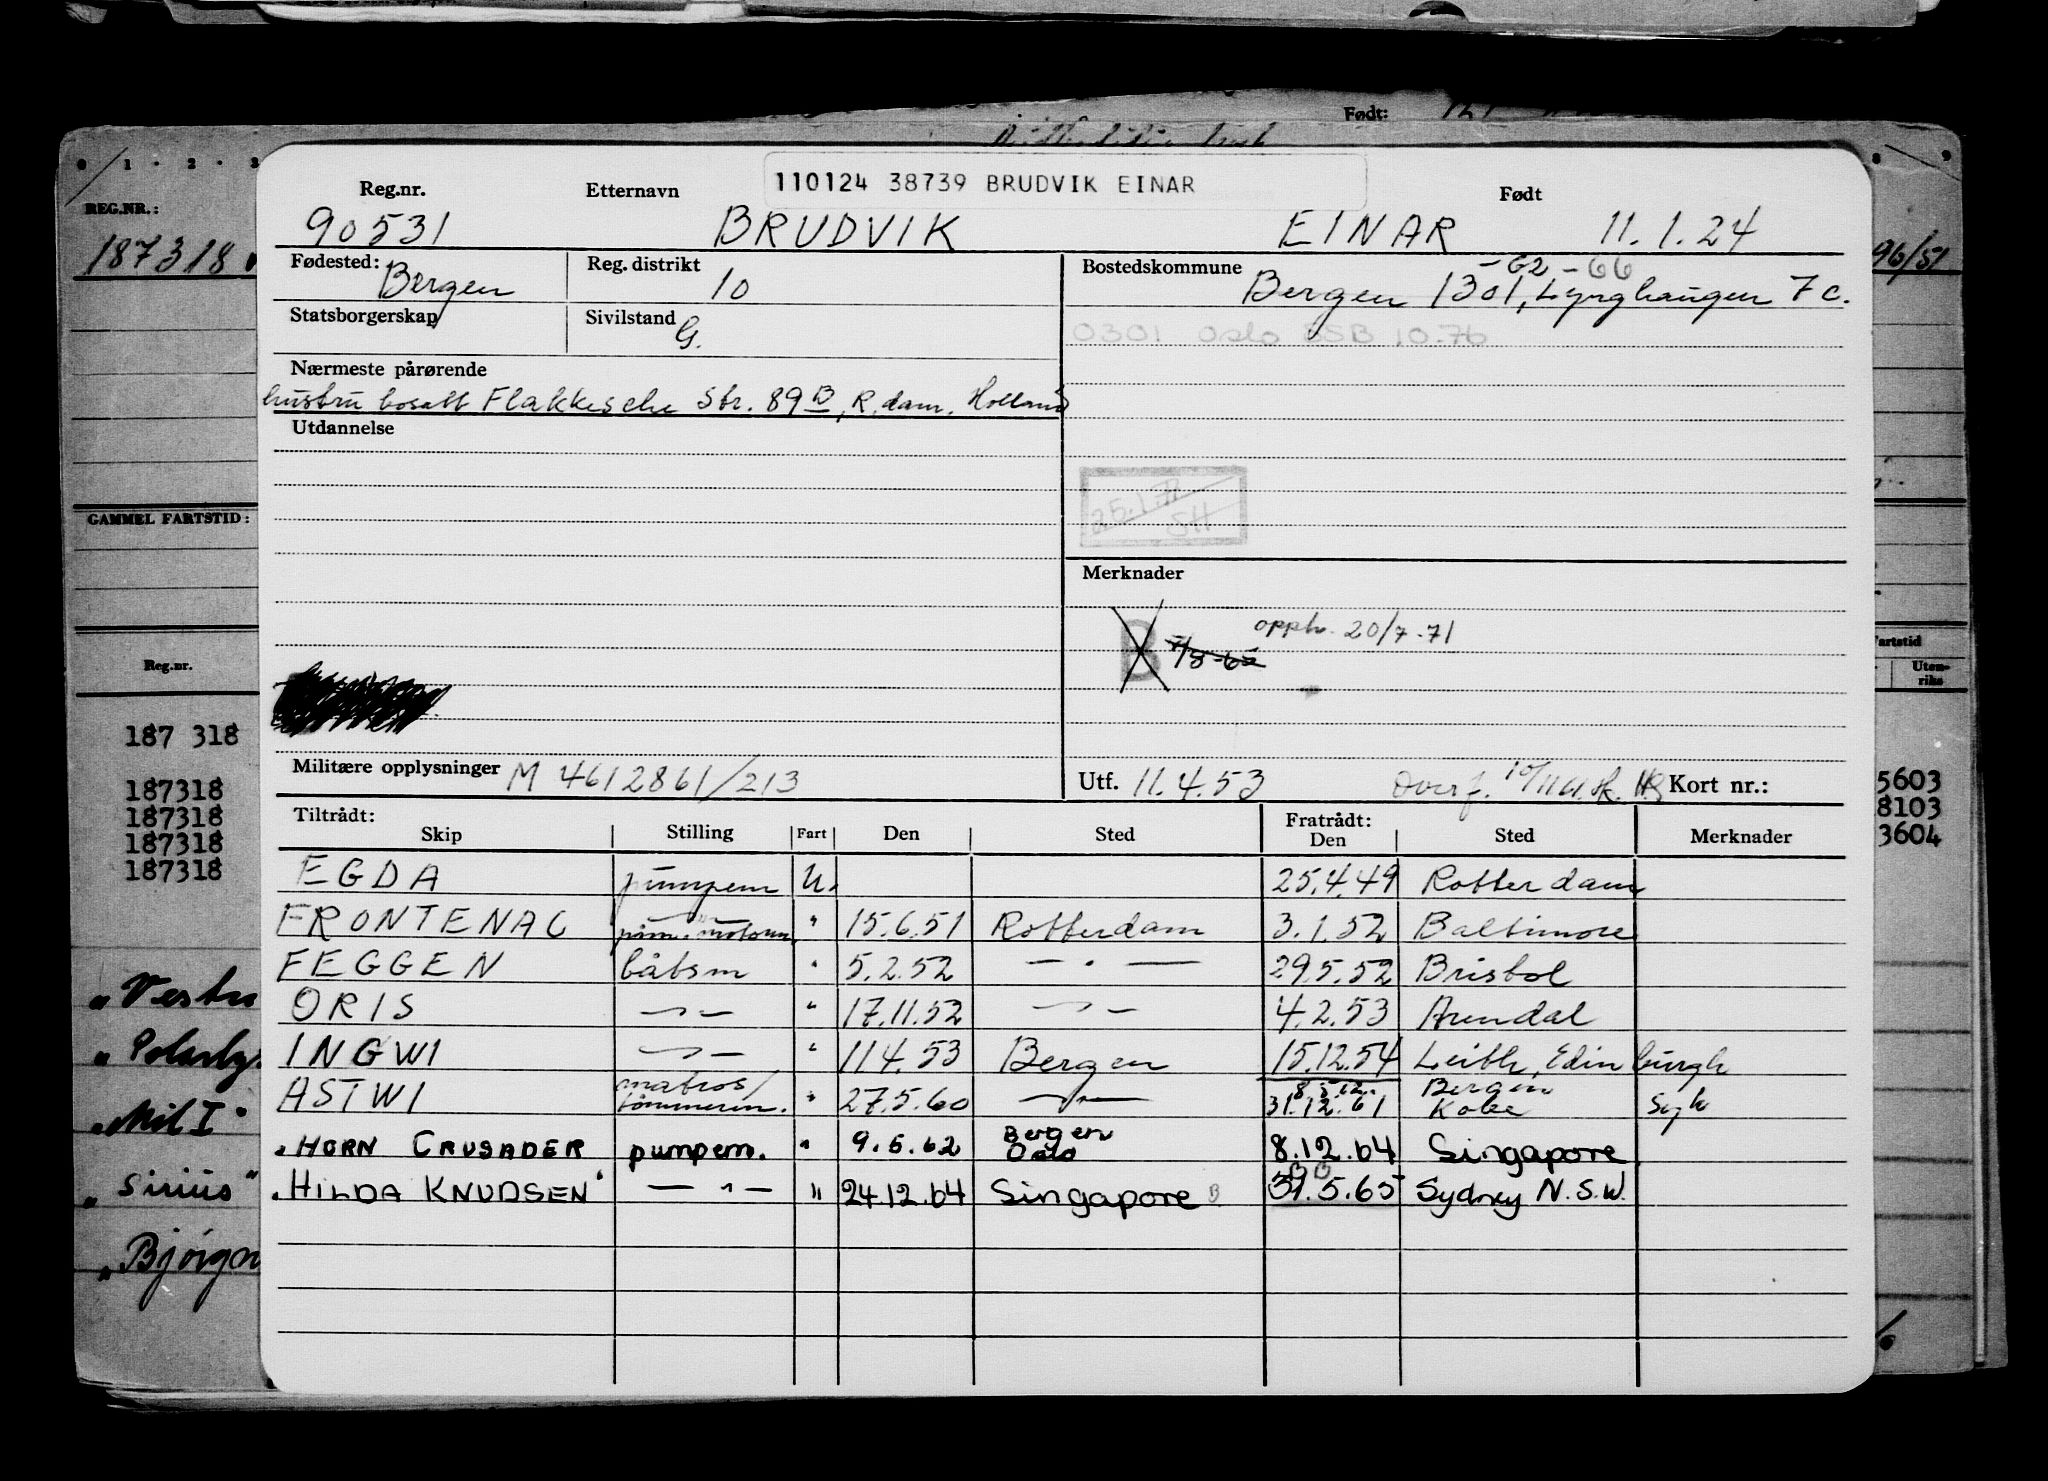 Født:
0 1 · 2 · 3
8 9
REG.NR.:
187318
96/51
GAMMEL FARTSTID:
Reg.nr.
187 318
187318
187318
187318
187318
„Vestr
„Polarly
„Mil I"
„Sirius"
„Bjørgv
Fartstid
Uten-
riks
5603
8103
3604
110124 38739 BRUDVIK EINAR
Reg.nr. Etternavn Født
90531 BRUDVIK EINAR 11.1.24
Fødested: Bergen Reg. distrikt 10 Bostedskommune
-62 -66
Bergen 1301, Lynghaugen 7c.
Statsborgerskap Sivilstand G.
0301 Oslo SSB 10.76
Nærmeste pårørende
hustru bosatt Flakkesche Str. 89 B, R.dam. Holland
Utdannelse
25.1.71
SH
Merknader
B 7/8-65 opph. 20/7-71
Militære opplysninger M 4612861/213
Utf. 11.4.53 Overf. 10/11 61 Kort nr.:
Tiltrådt: Fratrådt:
Skip Stilling Fart Den Sted Den Sted Merknader
EGDA pumpem U. 25.4.49 Rotterdam
FRONTENAC " 15.6.51 Rotterdam 3.1.52 Baltimore
FEGGEN båtsm " 5.2.52 — " — 29.5.52 Bristol
ORIS — " — " 17.11.52 — " — 4.2.53 Arendal
INGWI — " — " 11.4.53 Bergen 15.12.54 Leith, Edinburgh
ASTWI matros/tømmerm. " 27.5.60 — " — 31.12.61 Bergen Kobe Syk
„HORN CRUSADER pumpem. " 9.5.62 Bergen Oslo 8.12.64 Singapore
„HILDA KNUDSEN" — " — " 24.12.64 Singapore B 31.5.65 Sydney N.S.W.